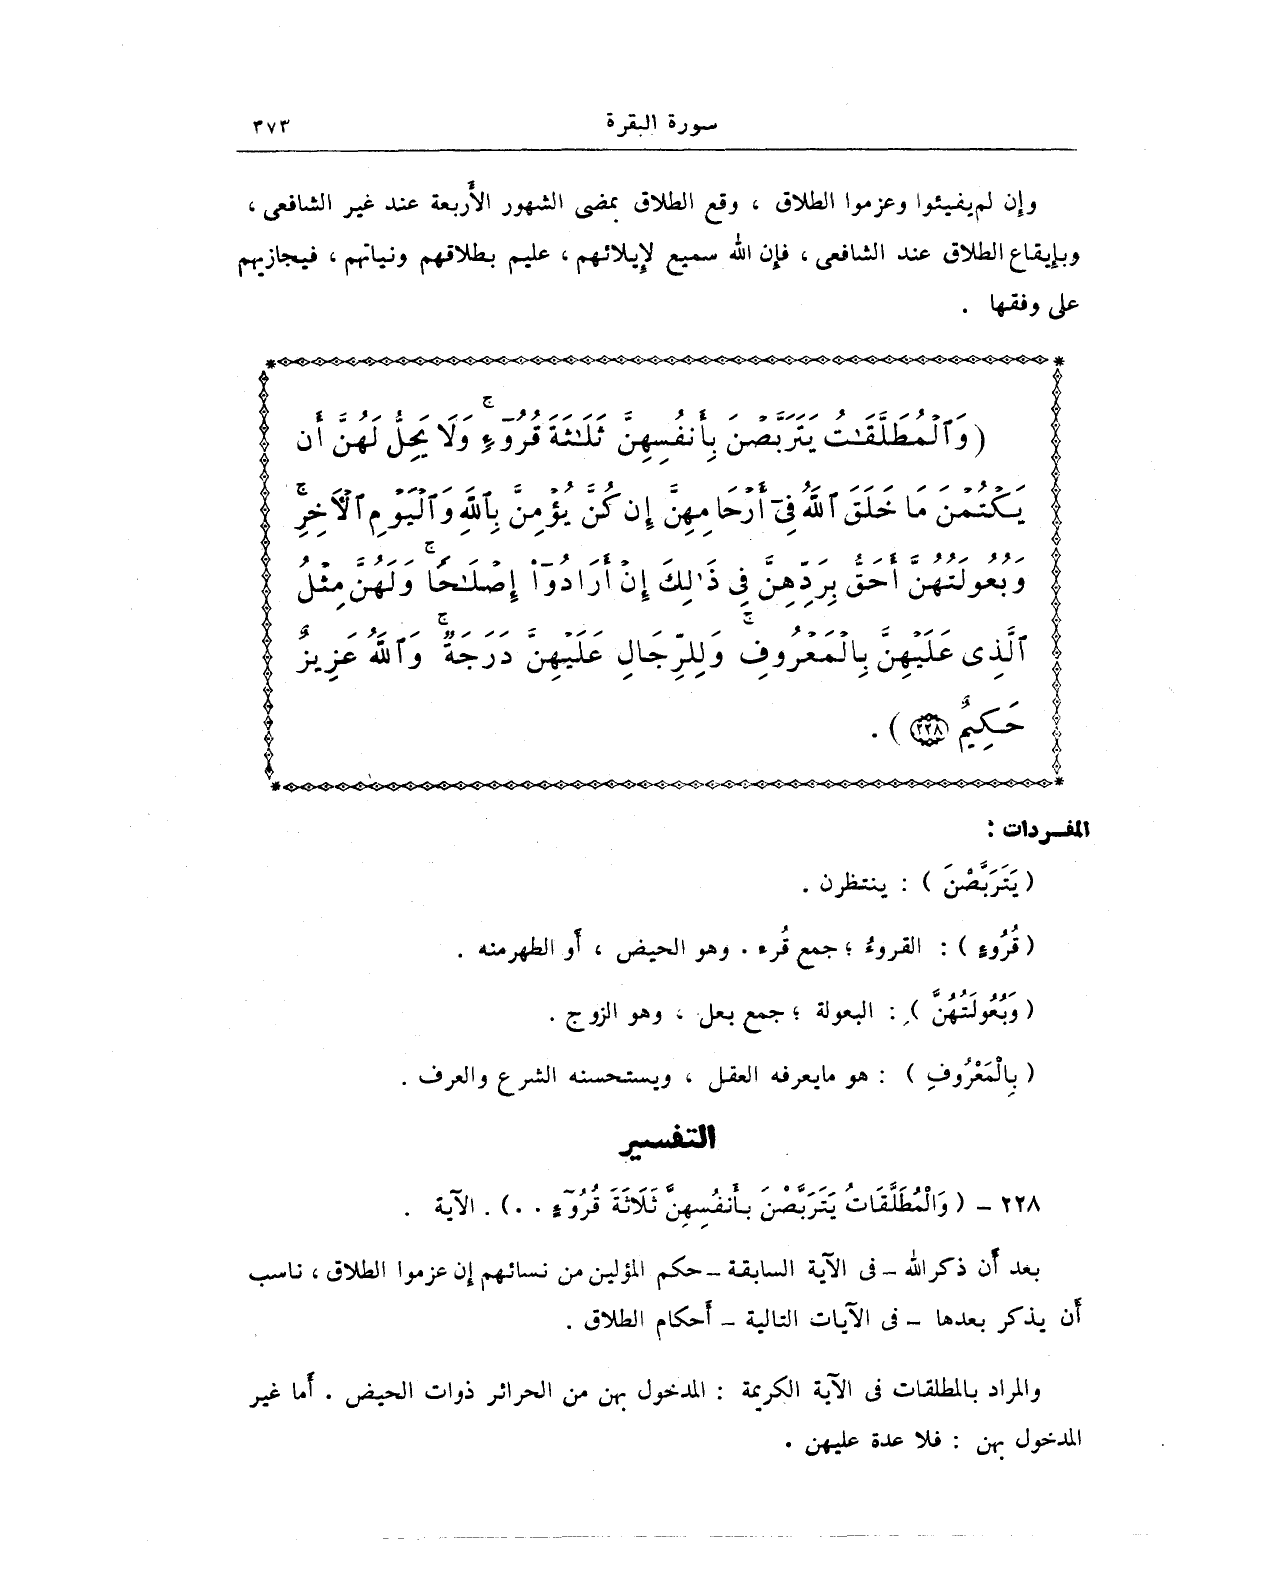 سورة البقرة ٣٧٣
وإن لم يفيئوا وعزموا الطلاق ، وقع الطلاق بمضى الشهور الأربعة عند غير الشافعى ،
وبإيقاع الطلاق عند الشافعى ، فإن الله سميع لإيلائهم ، عليم بطلاقهم ونياتهم ، فيجازيهم
على وفقها .
( وَٱلْمُطَلَّقَـٰتُ يَتَرَبَّصْنَ بِأَنفُسِهِنَّ ثَلَـٰثَةَ قُرُوٓءٍ ۚ وَلَا يَحِلُّ لَهُنَّ أَن
يَكْتُمْنَ مَا خَلَقَ ٱللَّهُ فِىٓ أَرْحَامِهِنَّ إِن كُنَّ يُؤْمِنَّ بِٱللَّهِ وَٱلْيَوْمِ ٱلْآخِرِ ۚ
وَبُعُولَتُهُنَّ أَحَقُّ بِرَدِّهِنَّ فِى ذَٰلِكَ إِنْ أَرَادُوٓا۟ إِصْلَـٰحًا ۚ وَلَهُنَّ مِثْلُ
ٱلَّذِى عَلَيْهِنَّ بِٱلْمَعْرُوفِ ۚ وَلِلرِّجَالِ عَلَيْهِنَّ دَرَجَةٌ ۗ وَٱللَّهُ عَزِيزٌ
حَكِيمٌ ٢٢٨ ) .
المفردات :
( يَتَرَبَّصْنَ ) : ينتظرن .
( قُرُوءٍ ) : القروءُ ؛ جمع قُرء . وهو الحيض ، أو الطهر منه .
( وَبُعُولَتُهُنَّ ) : البعولة ؛ جمع بعل ، وهو الزوج .
( بِالْمَعْرُوفِ ) : هو مايعرفه العقل ، ويستحسنه الشرع والعرف .
التفسير
٢٢٨ – ( وَالْمُطَلَّقَاتُ يَتَرَبَّصْنَ بِأَنفُسِهِنَّ ثَلَاثَةَ قُرُوٓءٍ . . ) . الآية .
بعد أن ذكر الله – فى الآية السابقة – حكم المؤلين من نسائهم إن عزموا الطلاق ، ناسب
أن يذكر بعدها – فى الآيات التالية – أحكام الطلاق .
والمراد بالمطلقات فى الآية الكريمة : المدخول بهن من الحرائر ذوات الحيض . أما غير
المدخول بهن : فلا عدة عليهن .